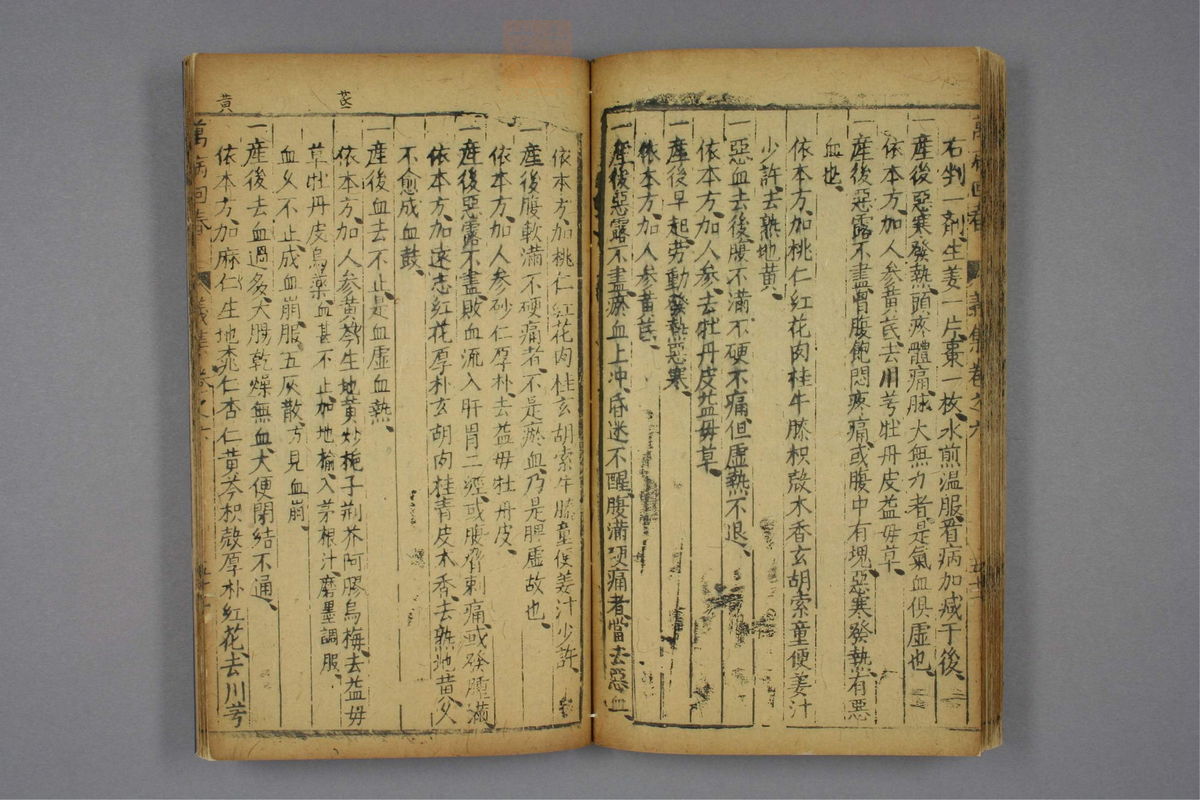 右剉一劑生姜一片棗一枚水煎溫服看病加減于後
一產後惡寒發熱頭疼體痛脉大無力者是氣血俱虛也
依本方加人參黃芪去川芎牡丹皮益母草
一產後惡露不盡胷腹飽悶疼痛或腹中有塊惡寒發熱有惡
血也
依本方加桃仁紅花肉桂牛膝枳殼木香玄胡索童便姜汁
少許去熟地黃
一惡血去後腹不滿不硬不痛但虛熱不退
依本方加人參去牡丹皮益母草
一產後早起劳動發熱惡寒
依本方加人參黃芪
一產後惡露不盡瘀血上冲昏迷不醒腹滿硬痛者當去惡血
依本方加桃仁紅花肉桂玄胡索牛膝童便姜汁少許
一產後腹軟滿不硬痛者不是瘀血乃是脾虛故也
依本方加人參砂仁厚朴去益母牡丹皮
一產後惡露不盡敗血流入肝胃二經或腹脅刺痛或發腫滿
依本方加逐志紅花厚朴玄胡肉桂青皮木香去熟地黃父
不愈成血鼓
一產後血去不止是血虛血熱
依本方加人參黃芩生地黃炒梔子荆芥阿膠烏梅去益母
草牡丹皮烏藥血甚不止加地榆入茅根汁磨墨調服
血父不止成血崩服五灰散方見血崩
一產後去血過多大腸乾燥無血大便閉結不通
依本方加麻仁生地桃仁杏仁黃芩枳殼厚朴紅花去川芎
萬病回春 義集
黃